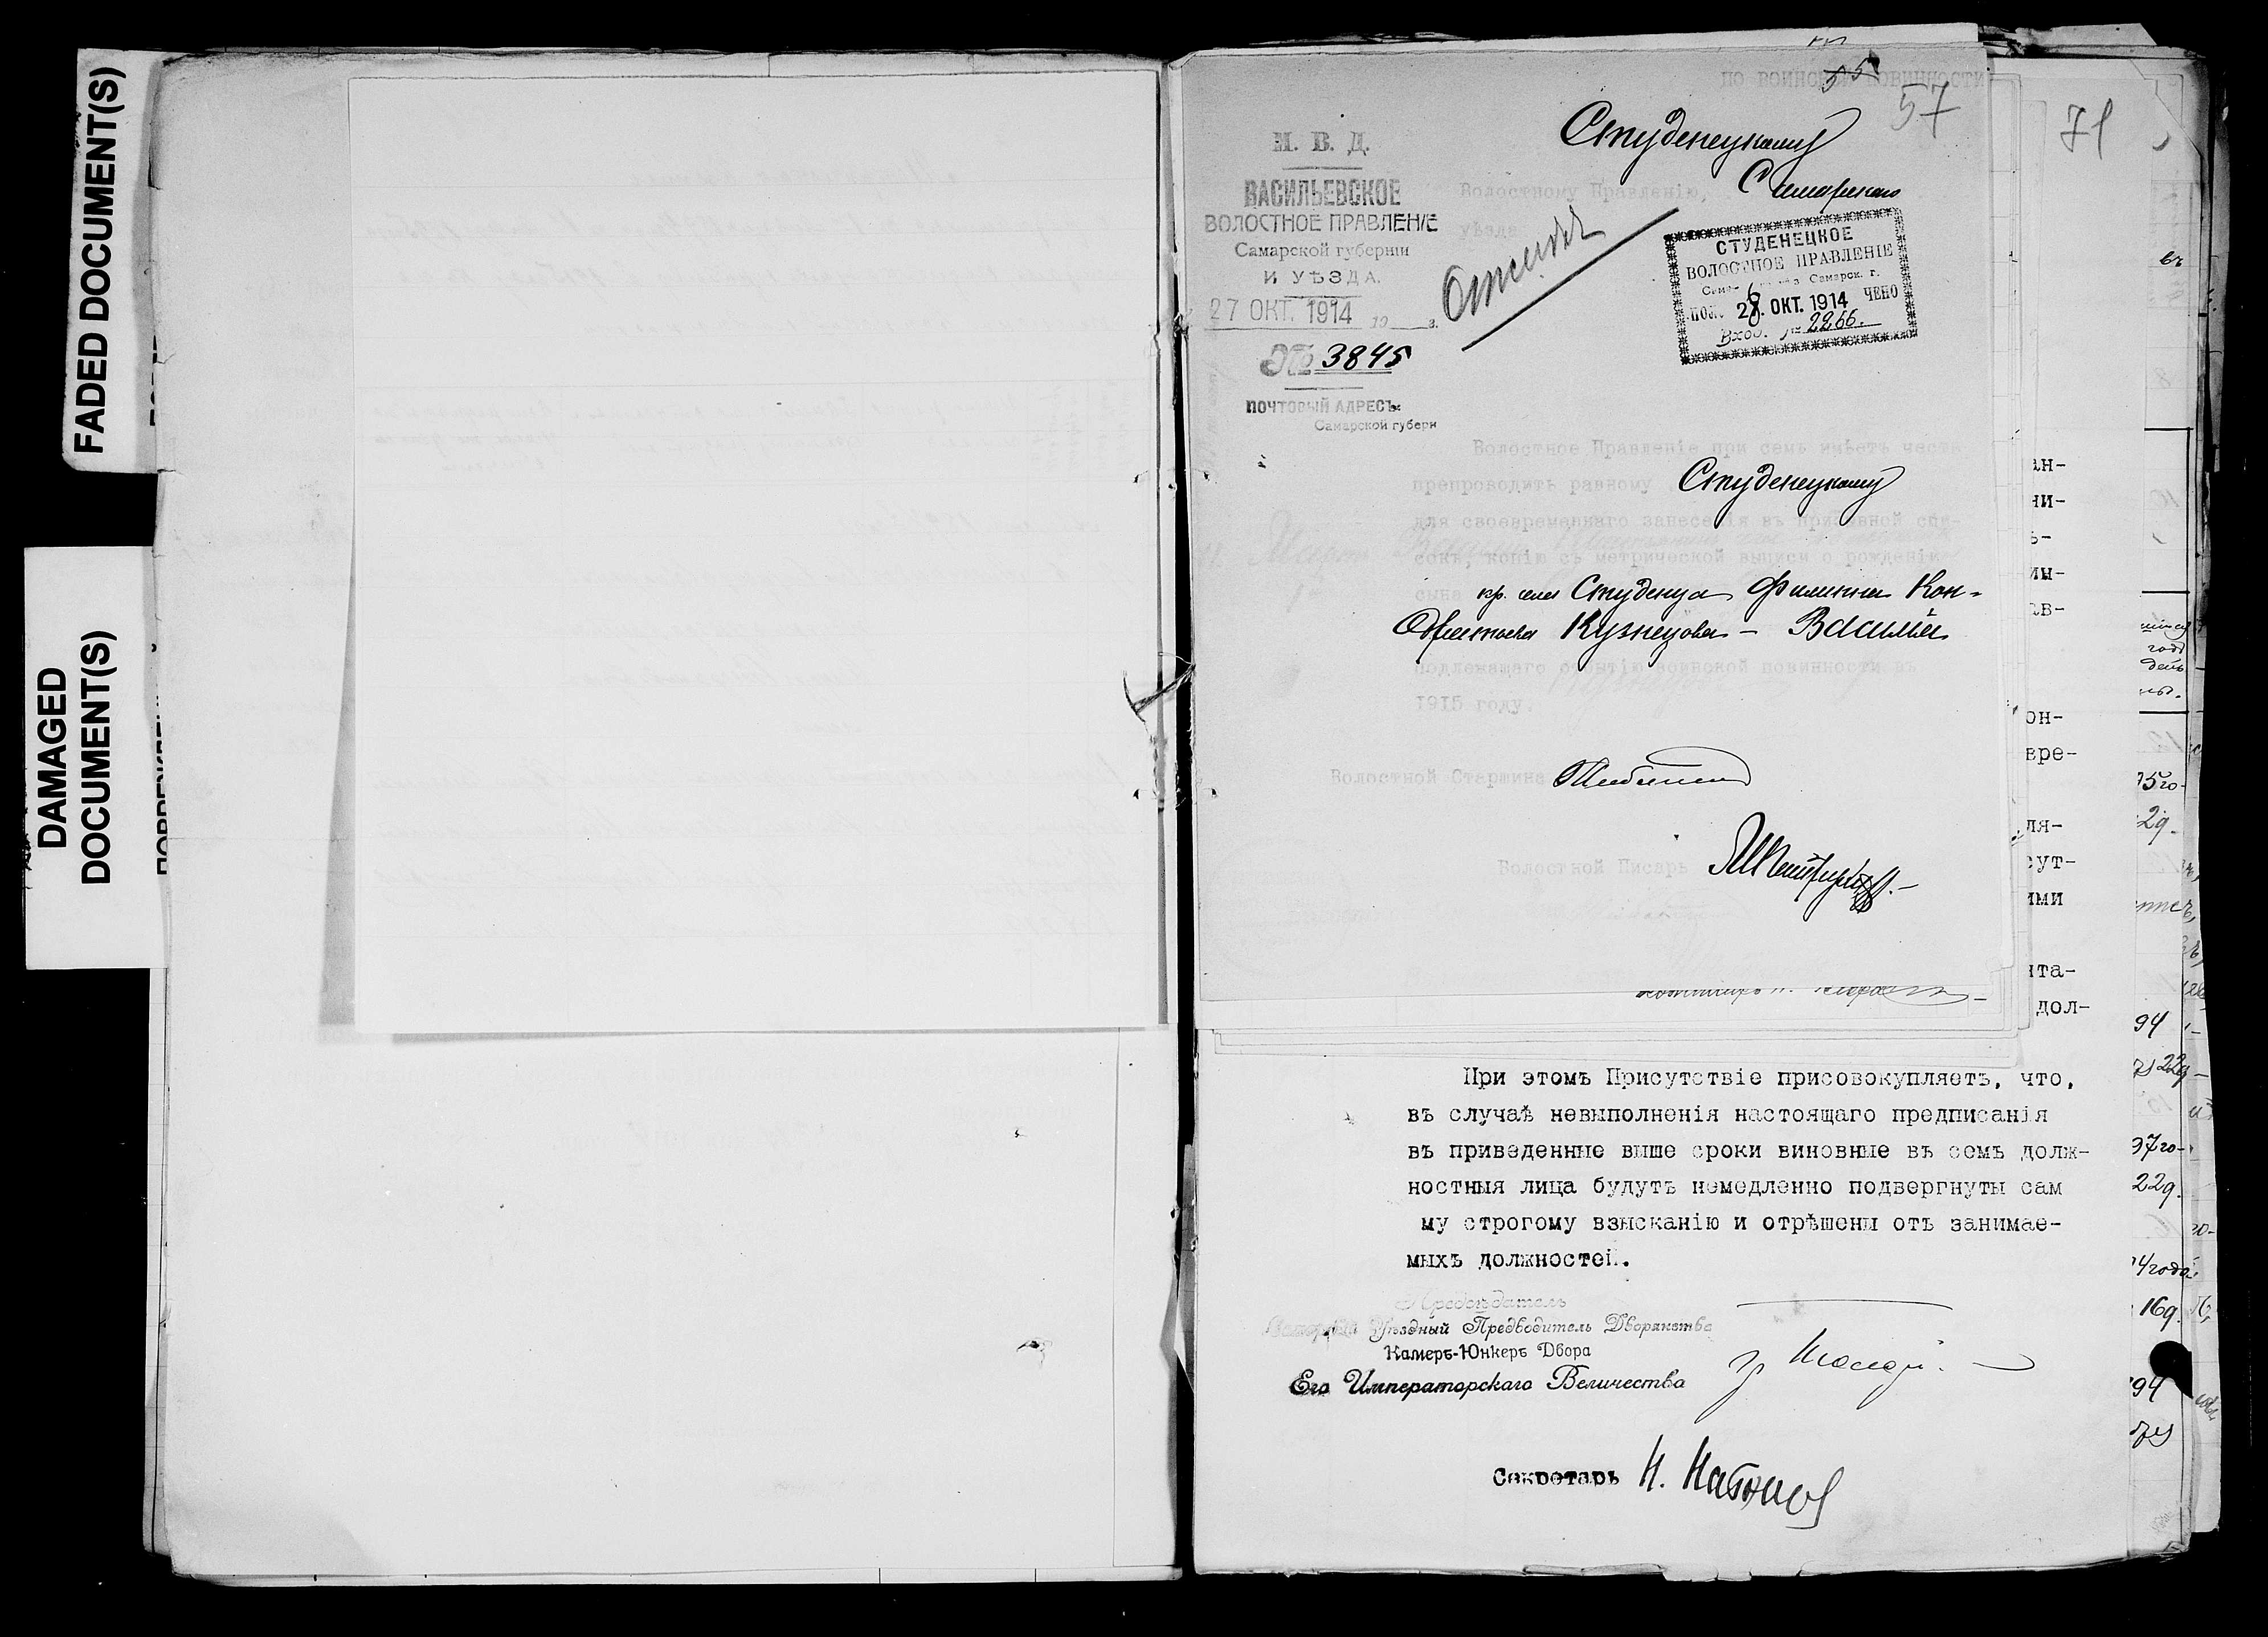 FADED DOCUMENT(S)
DAMAGED
DOCUMENT(S)
55
ПО ВОИНСКОЙ ПОВИННОСТИ
57
71
М. В. Д.
ВАСИЛЬЕВСКОЕ
ВОЛОСТНОЕ ПРАВЛЕНІЕ
Самарской губерніи
И УѢЗДА.
27 ОКТ. 1914
№ 3845
ПОЧТОВЫЙ АДРЕСЪ:
Самарской губерн
Студенецкому
Волостному Правленію, Самарскаго
уѣзда
СТУДЕНЕЦКОЕ
ВОЛОСТНОЕ ПРАВЛЕНІЕ
Самарск. г.
28 ОКТ. 1914 ЧЕНО
Вход. № 2266.
Волостное Правленіе при семъ имѣетъ честь
препроводить равному Студенецкому
для своевременнаго занесенія въ призывной спи-
сокъ, копію съ метрической выписи о рожденіи
сына кр. села Студенца Филиппа Кон-
дратьева Кузнецова - Василія
подлежащаго отбытію воинской повинности въ
1915 году.
Волостной Старшина
Волостной Писарь
При этомъ Присутствіе присовокупляетъ, что,
въ случаѣ невыполненія настоящаго предписанія
въ приведенные выше сроки виновные въ семъ долж-
ностныя лица будутъ немедленно подвергнуты сам
му строгому взысканію и отрѣшены отъ занимае-
мыхъ должностей.
Предсѣдатель
Самарскій Уѣздный Предводитель Дворянства
Камеръ-Юнкеръ Двора
Его Императорскаго Величества
Секретарь